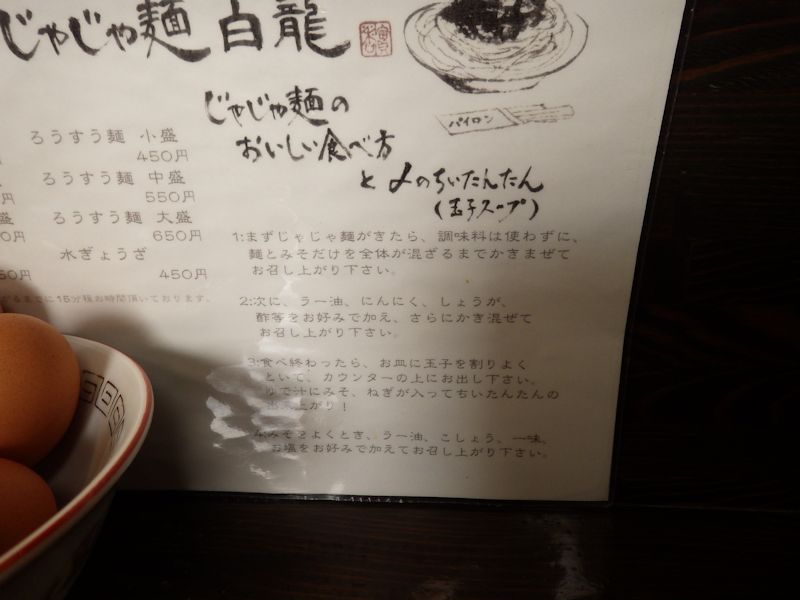 じゃじゃ麺 白龍
パイロン
じゃじゃ麺の
おいしい食べ方
と〆のちいたんたん
(玉子スープ)
ろうすう麺 小盛
450円
ろうすう麺 中盛
550円
ろうすう麺 大盛
650円
水ぎょうざ
450円
1:まずじゃじゃ麺がきたら、調味料は使わずに、
麺とみそだけを全体が混ざるまでかきまぜて
お召し上がり下さい。
2:次に、ラー油、にんにく、しょうが、
酢等をお好みで加え、さらにかき混ぜて
お召し上がり下さい。
3:食べ終わったら、お皿に玉子を割りよく
といて、カウンターの上にお出し下さい。
ゆで汁にみそ、ねぎが入ってちいたんたんの
出来上がり!
4:みそをよくとき、ラー油、こしょう、一味、
お塩をお好みで加えてお召し上がり下さい。